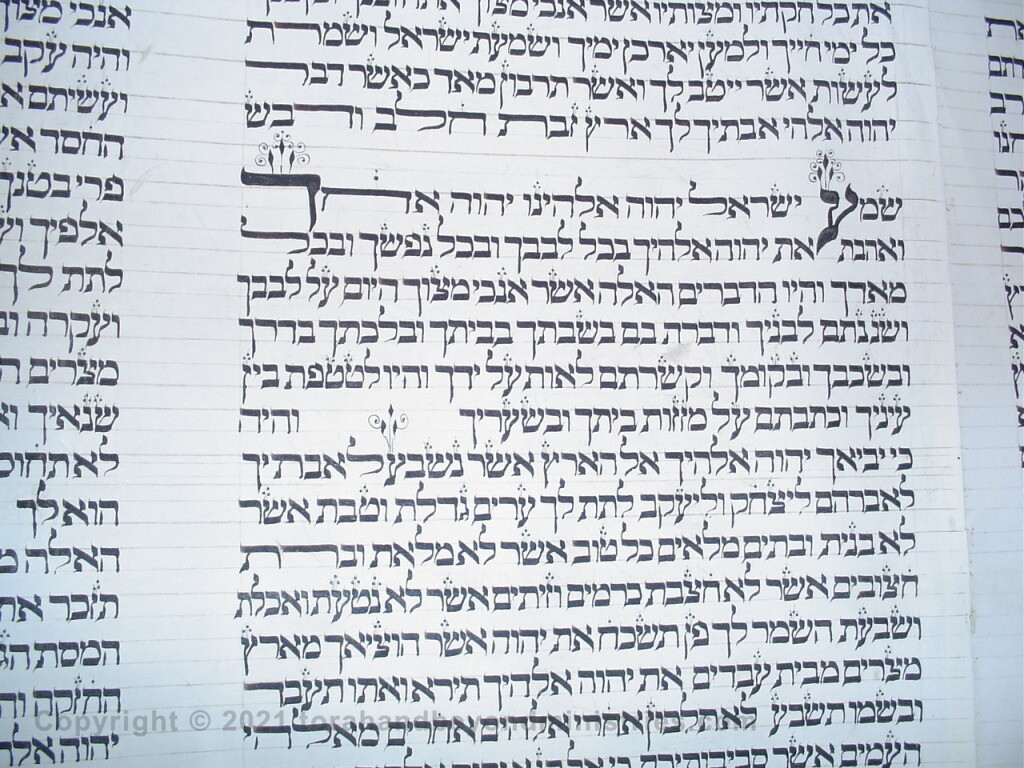 את כל חקתיו ומצותיו אשר אנכי מצוך אתה ובנך ובן בנך
כל ימי חייך ולמען יארכן ימיך ושמעת ישראל ושמרת
לעשות אשר ייטב לך ואשר תרבון מאד כאשר דבר
יהוה אלהי אבתיך לך ארץ זבת חלב ודבש
שמע ישראל יהוה אלהינו יהוה אחד
ואהבת את יהוה אלהיך בכל לבבך ובכל נפשך ובכל
מאדך והיו הדברים האלה אשר אנכי מצוך היום על לבבך
ושננתם לבניך ודברת בם בשבתך בביתך ובלכתך בדרך
ובשכבך ובקומך וקשרתם לאות על ידך והיו לטטפת בין
עיניך וכתבתם על מזזות ביתך ובשעריך והיה
כי יביאך יהוה אלהיך אל הארץ אשר נשבע לאבתיך
לאברהם ליצחק וליעקב לתת לך ערים גדלת וטבת אשר
לא בנית ובתים מלאים כל טוב אשר לא מלאת וברת
חצובים אשר לא חצבת כרמים וזיתים אשר לא נטעת ואכלת
ושבעת השמר לך פן תשכח את יהוה אשר הוציאך מארץ
מצרים מבית עבדים את יהוה אלהיך תירא ואתו תעבד
ובשמו תשבע לא תלכון אחרי אלהים אחרים מאלהי
העמים אשר סביבותיכם כי אל
אנכי מצוך
והיה עקב
ועשיתם
החסד
פרי בטנך
אלפיך
לתת לך
ועקרה
מצרים
שנאיך
לא תחוס
הוא לך
האלה
תזכר את
המסת
החזקה
יהוה אלה
Copyright © 2021 torahandbeyondministries.com